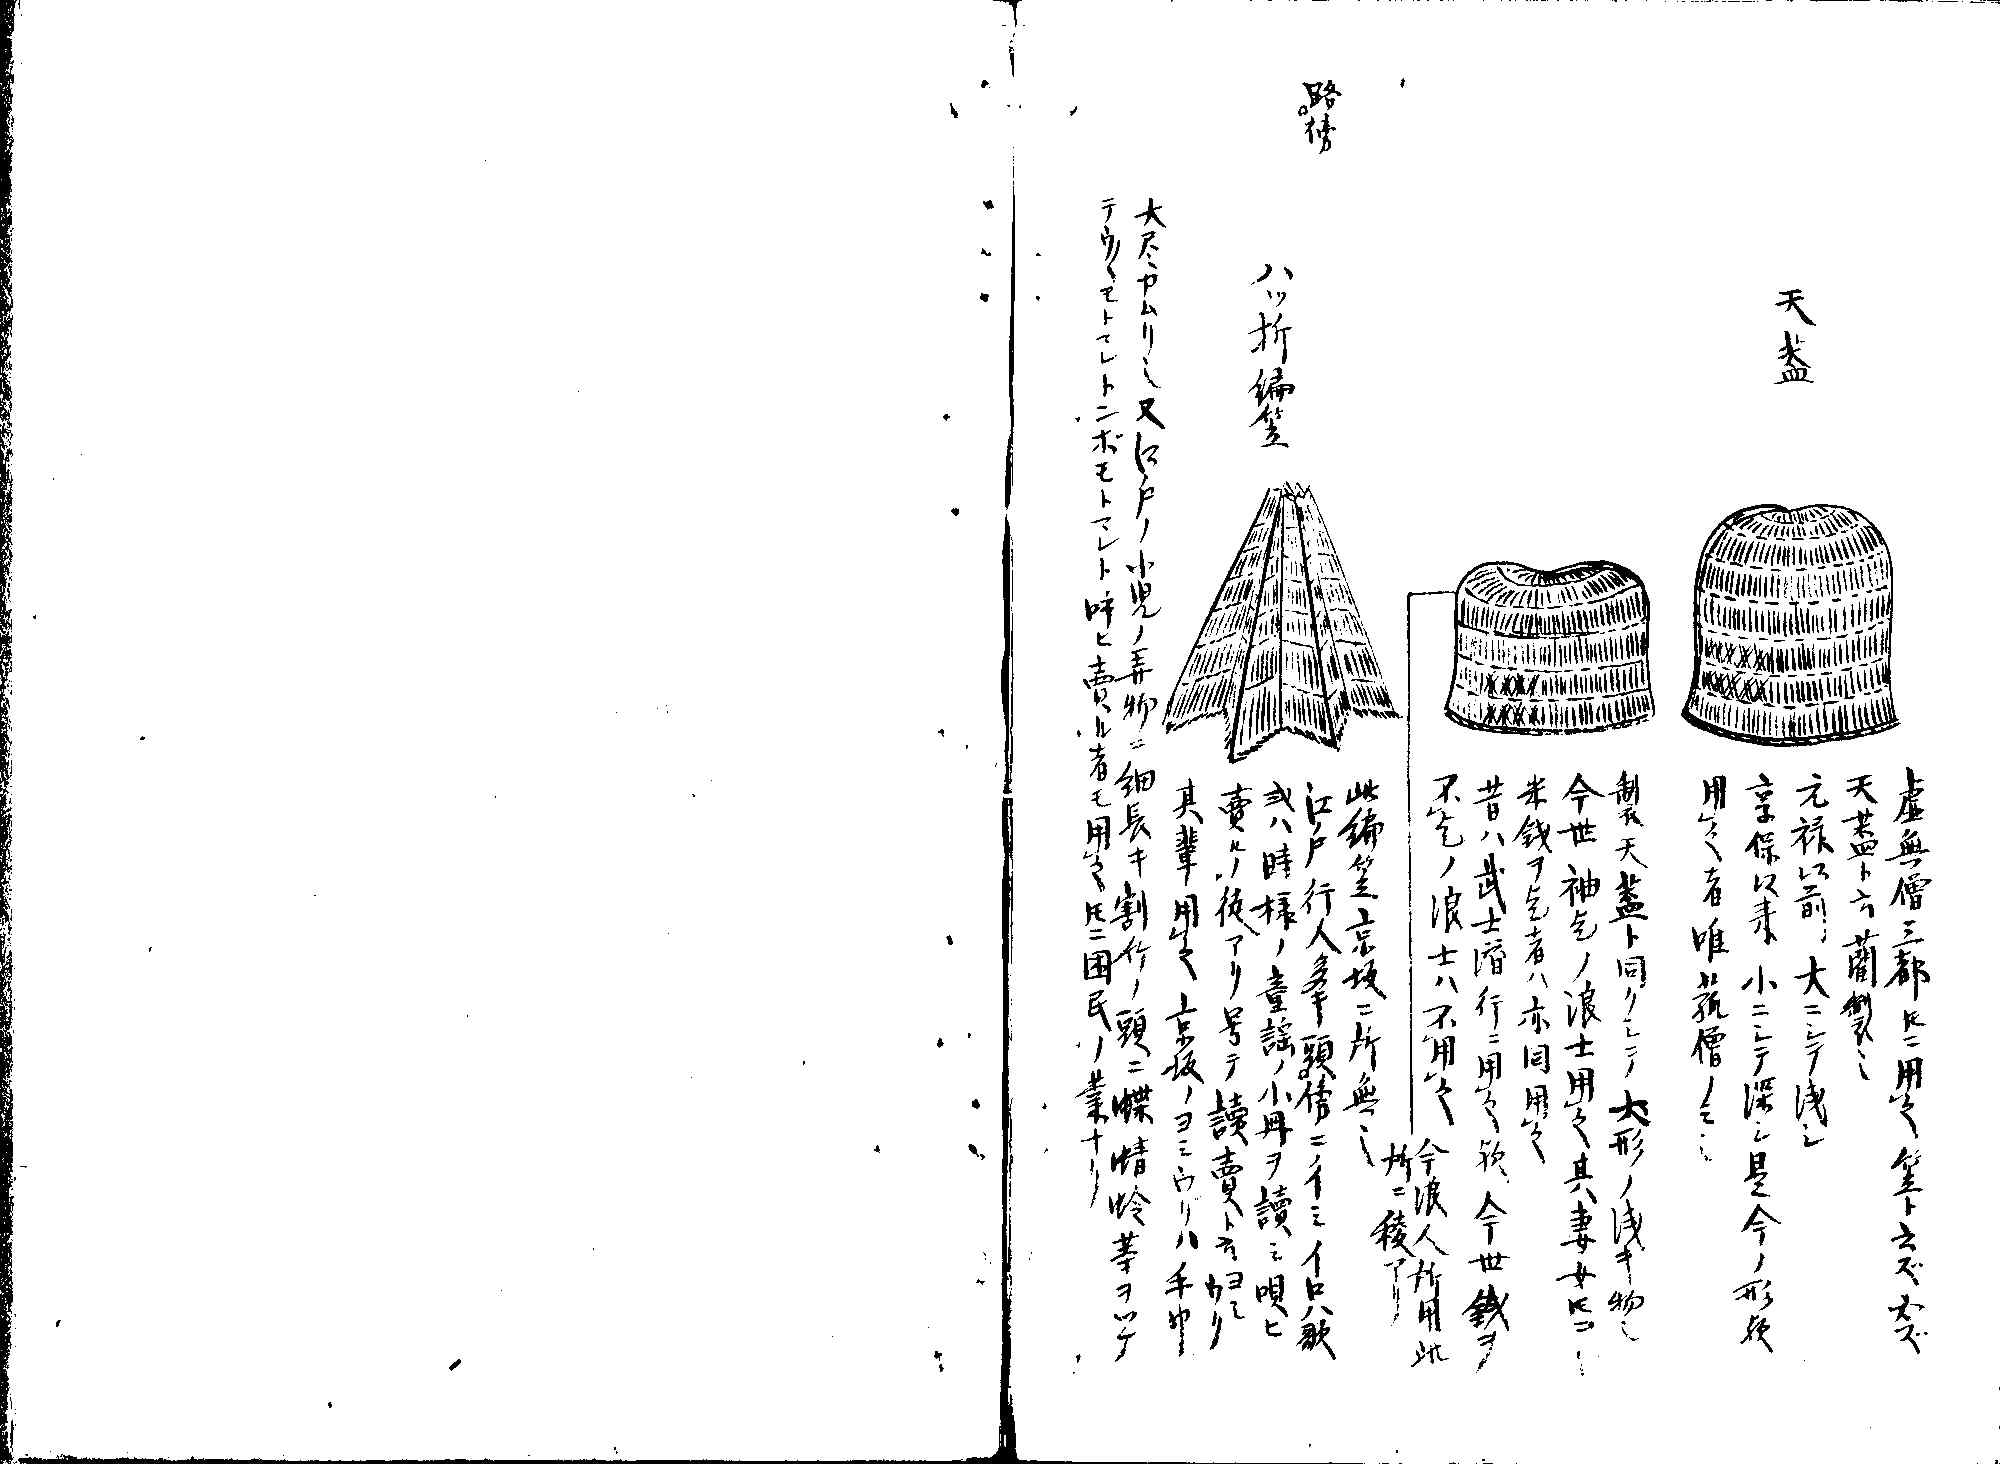 天蓋
虚無僧三都トモニ用之笠ト云ズ
天蓋ト云藺製也
元禄以前ハ大ニシテ浅シ
享保以来小ニシテ深シ是今ノ形歟
用之者唯虚僧ノミ也
製天蓋ト同クシテ大形ノ浅キ物也
今世袖乞ノ浪士用之其妻女トモニ
米銭ヲ乞者ハ亦同用之
昔ハ武士潜行ニ用之歟今世銭ヲ
不乞ノ浪士ハ不用之
今浪人所用此
所ニ稜アリ
路傍
八ツ折編笠
此編笠京坂ニ所無也
江戸行人多キ頭傍ニイミイロハ歌
或ハ時様ノ童謡ノ小冊ヲ讀ミ唄ヒ
賣ルノ徒アリ号テ讀賣ト云ヨミウリ
其輩用之京坂ノヨミウリハ手巾
大尽カムリ也又江戸ノ小児ノ弄物ニ細長キ割竹ノ頭ニ蝶蜻蛉等ヲツケ
テウ〳〵モトマレトンボモトマレト呼ヒ賣ル者モ用之トモニ困民ノ業ナリ